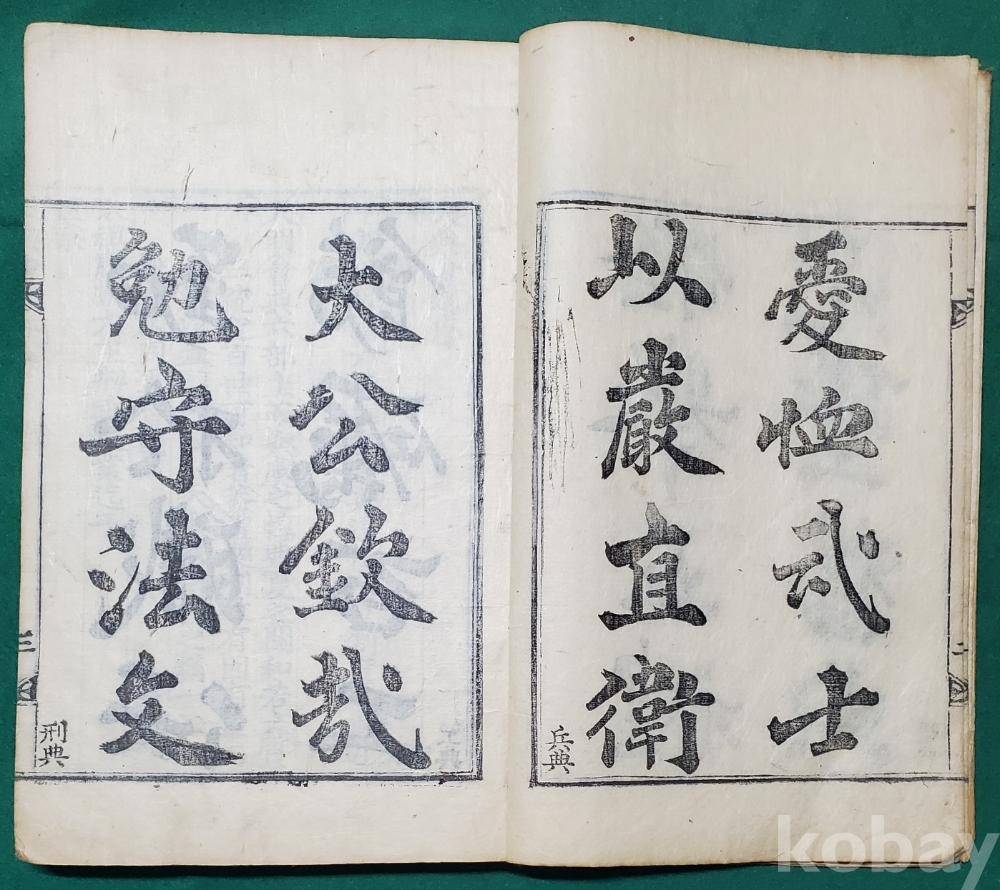 愛恤武士
以嚴直衛
兵典
二
大公欽哉
勉守法文
刑典
三
kobay